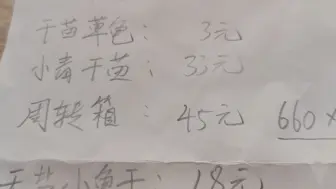 干苗草色: 3元
小毒干苗: 33元
周转箱: 45元 660×
干苗小鱼干: 18元